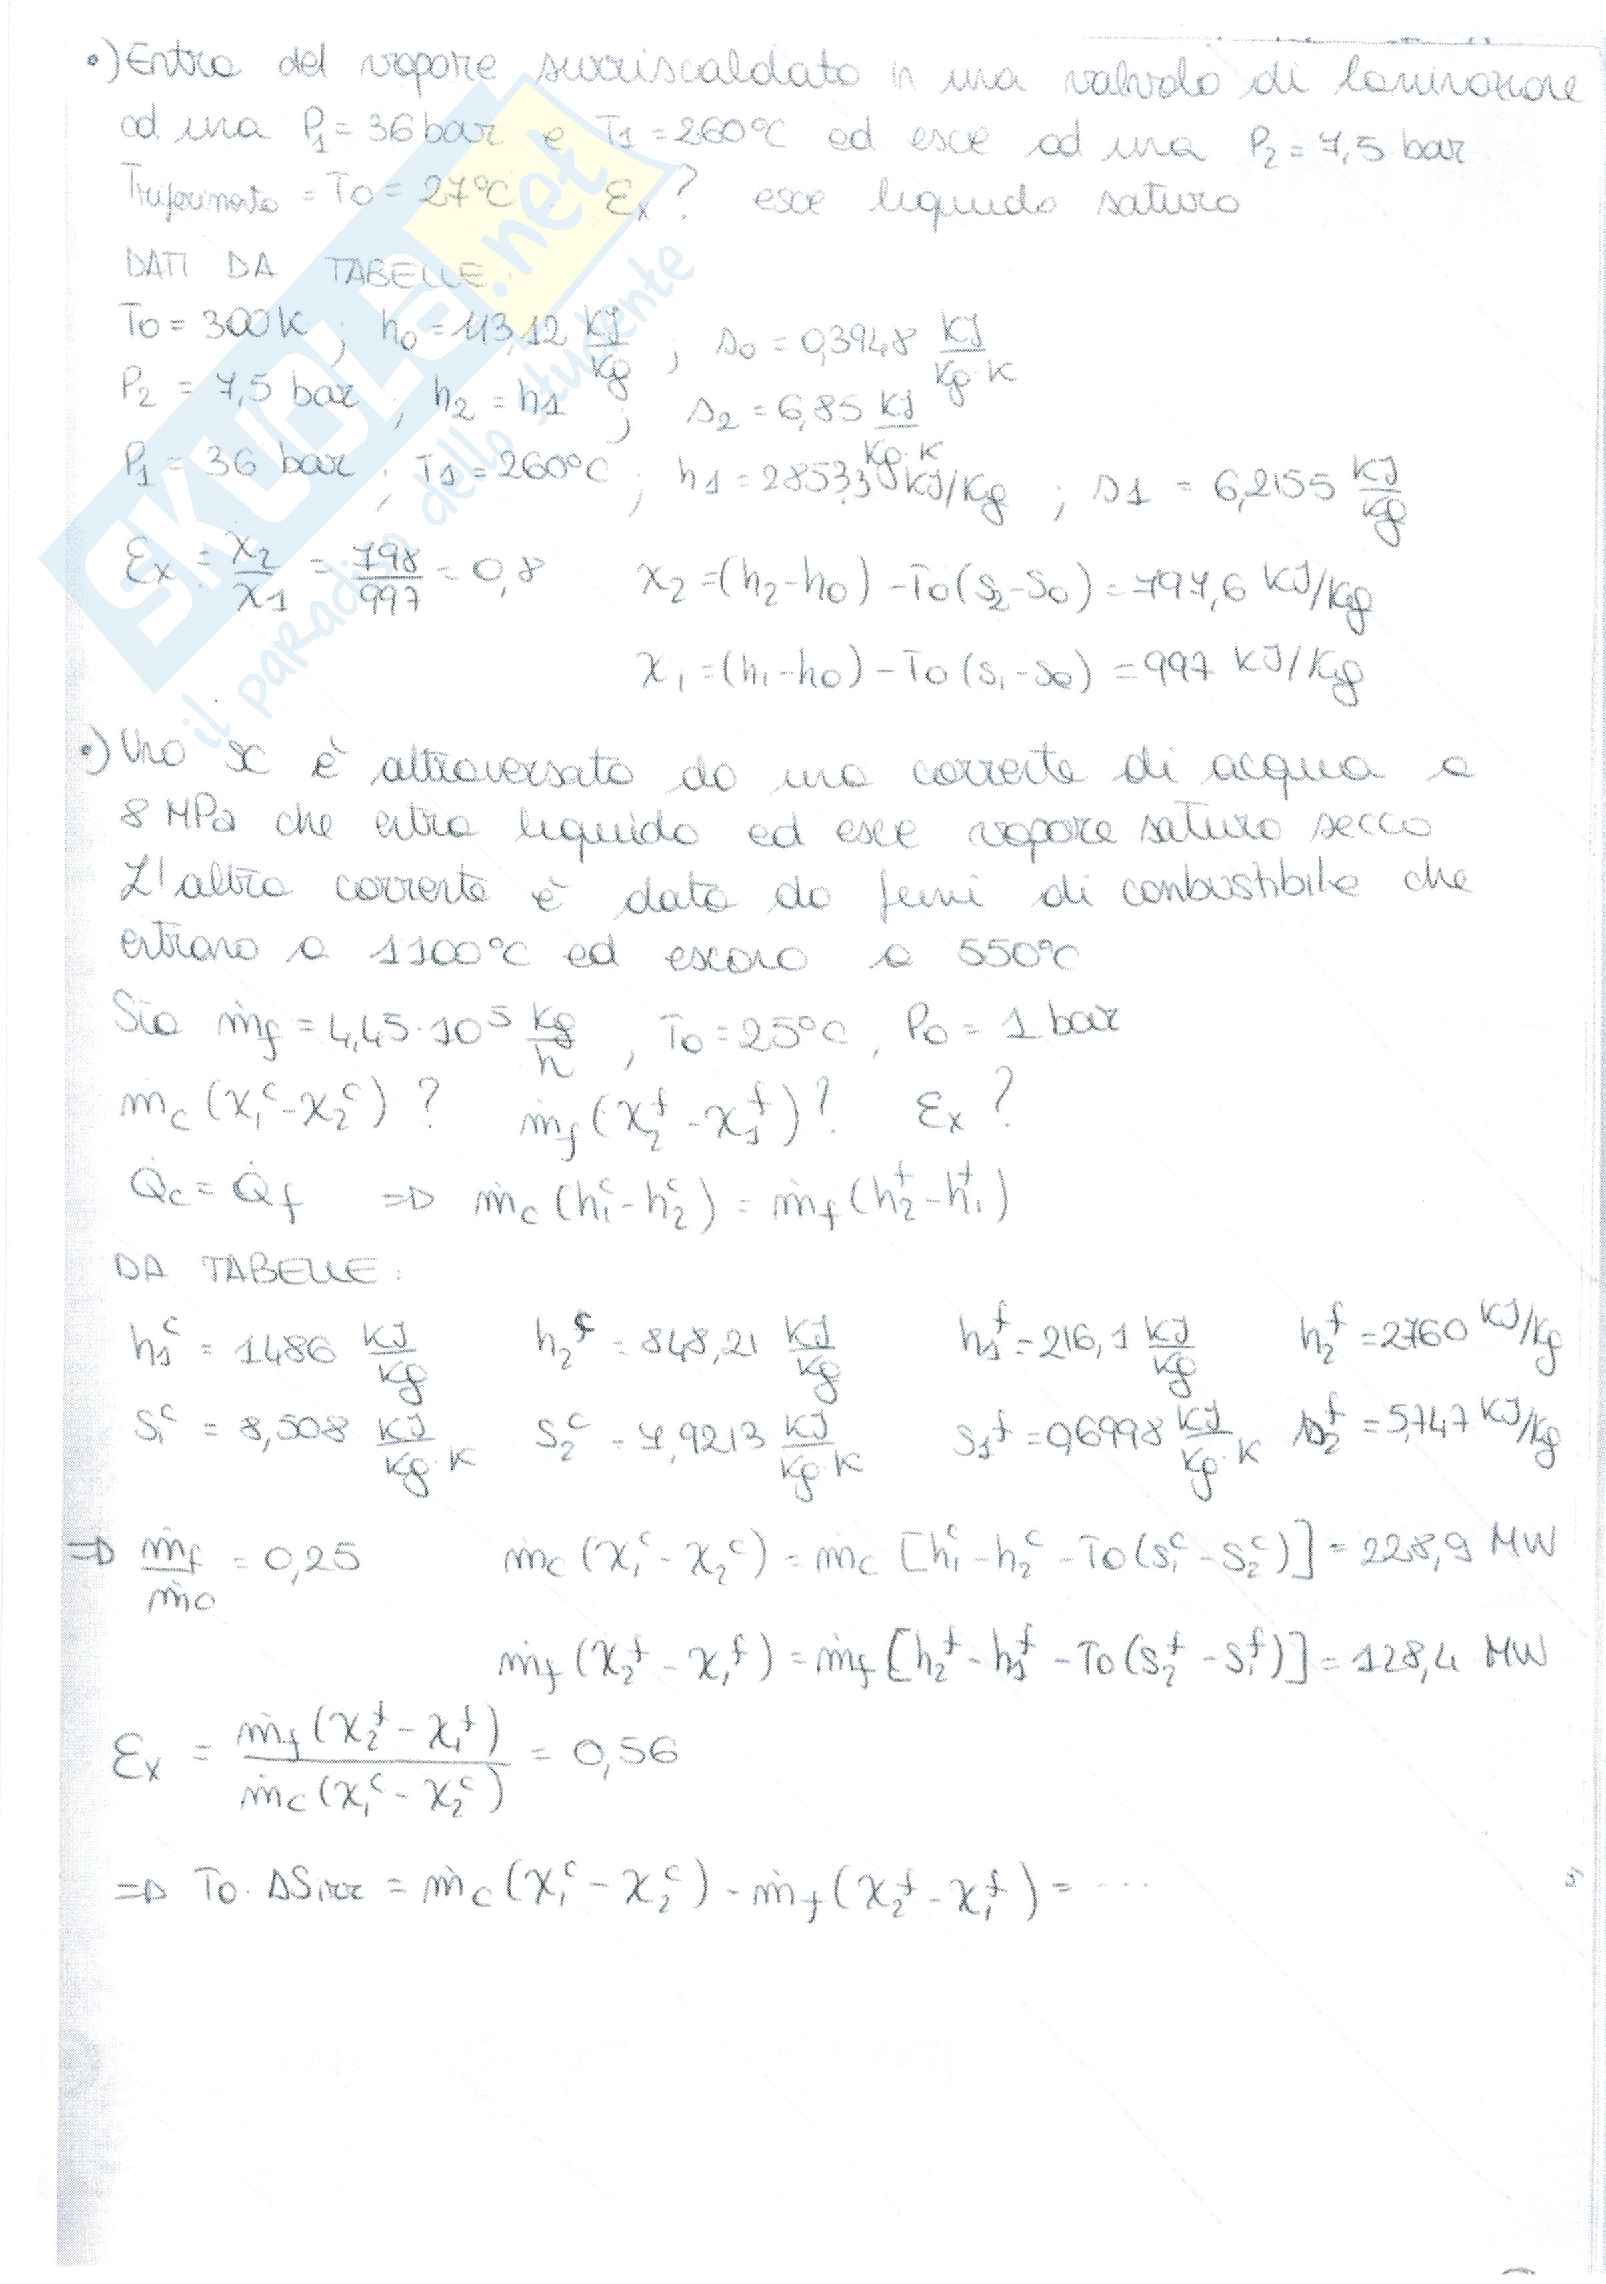 •) Entra del vapore surriscaldato in una valvola di laminazione
ad una P1 = 36 bar e T1 = 260°C ed esce ad una P2 = 7,5 bar
Triferimento = T0 = 27°C . Ex ? esce liquido saturo
DATI DA TABELLE:
T0 = 300K ; h0 = 113,12 KJ/Kg ; s0 = 0,3948 KJ/Kg·K
P2 = 7,5 bar ; h2 = h1 ; s2 = 6,85 KJ/Kg·K
P1 = 36 bar ; T1 = 260°C ; h1 = 2853,3 KJ/Kg ; s1 = 6,2155 KJ/Kg
Ex = x2/x1 = 798/997 = 0,8 x2 = (h2-h0) - T0(s2-s0) = 797,6 KJ/Kg
x1 = (h1-h0) - T0(s1-s0) = 997 KJ/Kg
•) Uno sc è attraversato da una corrente di acqua a
8 MPa che entra liquido ed esce vapore saturo secco
L'altra corrente è data da fumi di combustibile che
entrano a 1100°C ed escono a 550°C
Sia ṁf = 4,45·10^5 Kg/h , T0 = 25°C , P0 = 1 bar
ṁc (x1^c - x2^c) ? ṁf (x2^f - x1^f) ? Ex ?
Q̇c = Q̇f => ṁc (h1^c - h2^c) = ṁf (h2^f - h1^f)
DA TABELLE:
h1^c = 1486 KJ/Kg h2^c = 848,21 KJ/Kg h1^f = 216,1 KJ/Kg h2^f = 2760 KJ/Kg
s1^c = 8,508 KJ/Kg·K s2^c = 7,9213 KJ/Kg·K s1^f = 0,6998 KJ/Kg·K s2^f = 5,747 KJ/Kg
=> ṁf/ṁc = 0,25 ṁc (x1^c - x2^c) = ṁc [h1^c - h2^c - T0(s1^c - s2^c)] = 228,9 MW
ṁf (x2^f - x1^f) = ṁf [h2^f - h1^f - T0(s2^f - s1^f)] = 128,4 MW
Ex = ṁf (x2^f - x1^f) / ṁc (x1^c - x2^c) = 0,56
=> T0·ΔSirr = ṁc (x1^c - x2^c) - ṁf (x2^f - x1^f) = ...
5
SKUOLA.net
il paradiso dello studente